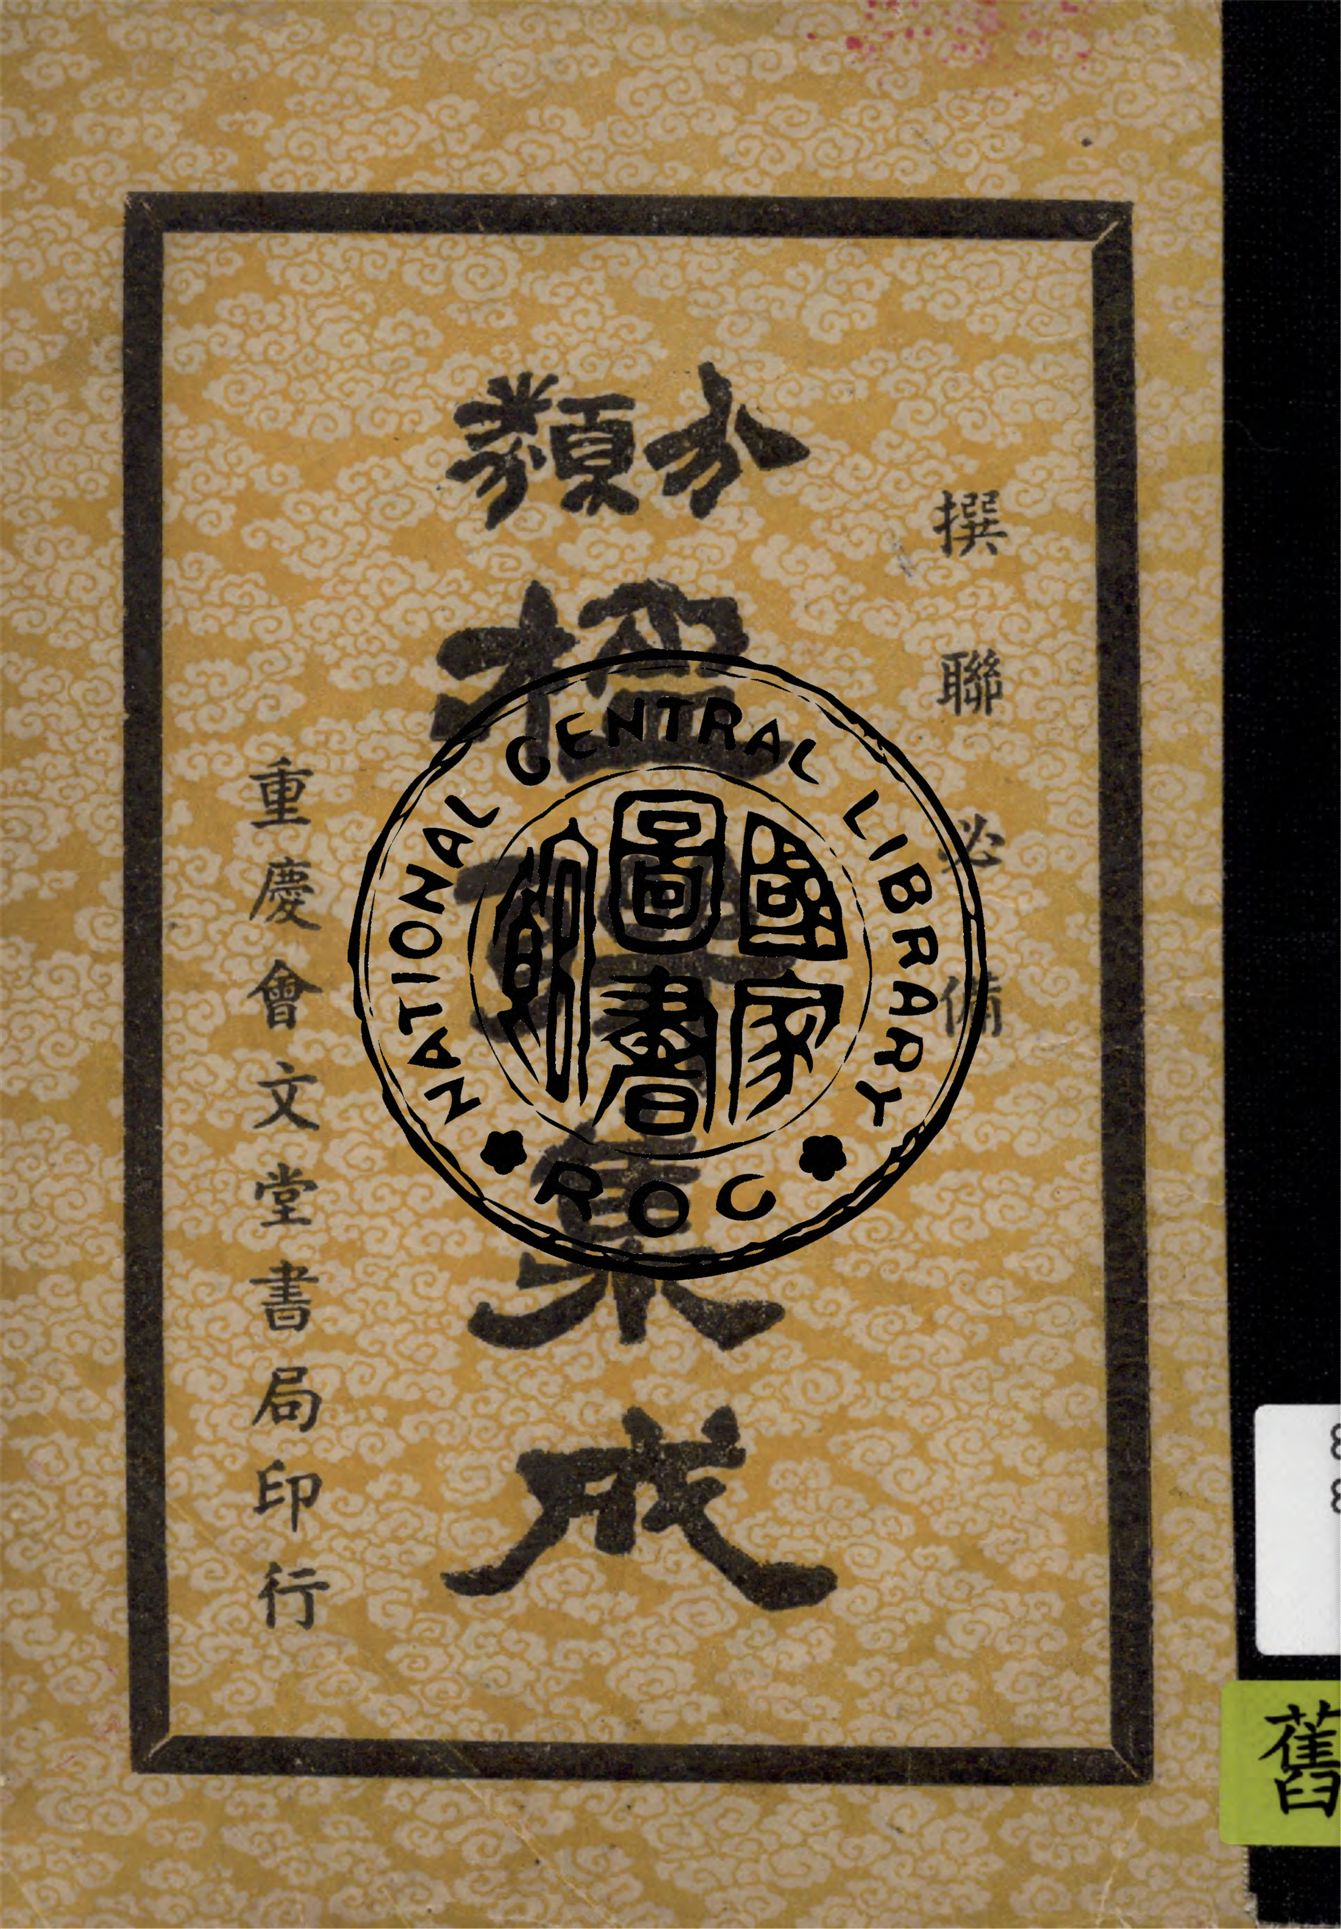 撰聯必備
分類
楹
集成
重慶會文堂書局印行
NATIONAL CENTRAL LIBRARY
國家圖書館
ROC
舊